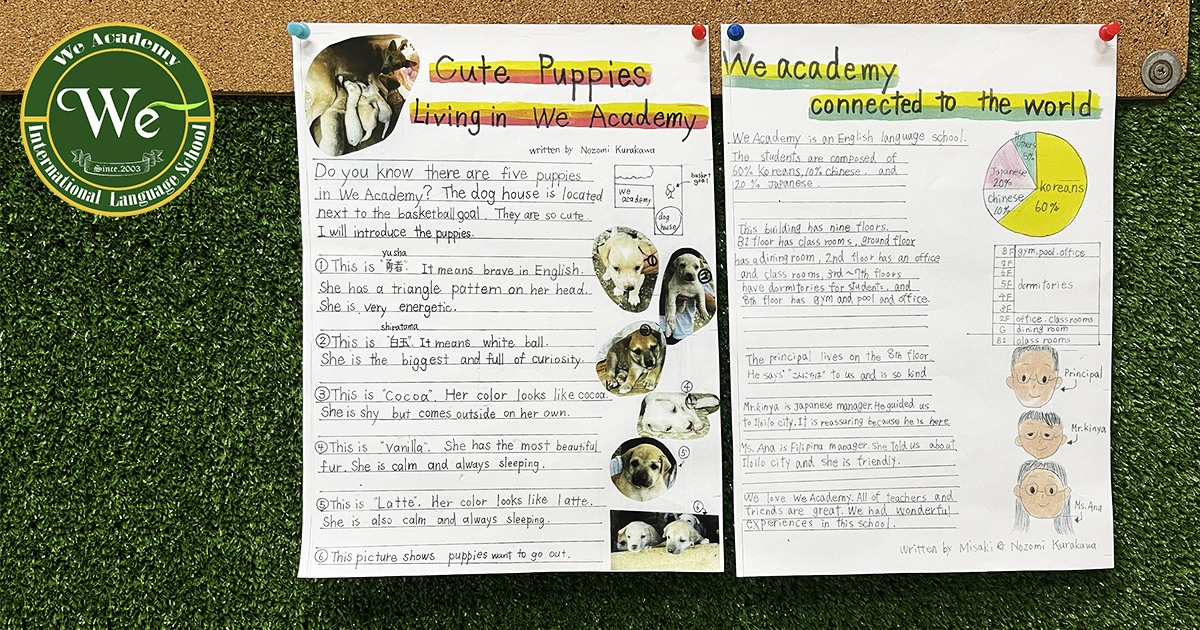 We Academy
We
Since.2003
International Language School
Cute Puppies
Living in We Academy
written by Nozomi Kurakawa
Do you know there are five puppies
in We Academy? The dog house is located
next to the basketball goal. They are so cute.
I will introduce the puppies.
we
academy
basket
goal
dog
house
yusha
① This is "勇者". It means brave in English.
She has a triangle pattern on her head.
She is very energetic.
shiratama
② This is "白玉". It means white ball.
She is the biggest and full of curiosity.
③ This is "Cocoa". Her color looks like cocoa.
She is shy but comes outside on her own.
④ This is "Vanilla". She has the most beautiful
fur. She is calm and always sleeping.
⑤ This is "Latte". Her color looks like latte.
She is also calm and always sleeping.
⑥ This picture shows puppies want to go out.
①
②
③
④
⑤
⑥
We academy
connected to the world
We Academy is an English language school.
The students are composed of
60% koreans, 10% chinese. and
20% Japanese.
others
5%
Japanese
20%
chinese
10%
koreans
60%
This building has nine floors.
B1 floor has class rooms, ground floor
has a dining room, 2nd floor has an office
and class rooms, 3rd~7th floors
have dormitories for students, and
8th floor has gym and pool and office.
8F gym.pool.office
7F
6F
5F dormitories
4F
3F
2F office.classrooms
G dining room
B1 class rooms
The principal lives on the 8th floor.
He says "こんにちは" to us and is so kind
Principal
Mr.kinya is Japanese manager. He guided us
to Iloilo city. It is reassuring because he is here.
Mr.kinya
Ms. Ana is Filipina manager. She told us about
Iloilo city and she is friendly.
Ms.Ana
We love We Academy. All of teachers and
friends are great. We had wonderful
experiences in this school.
written by Misaki & Nozomi Kurakawa